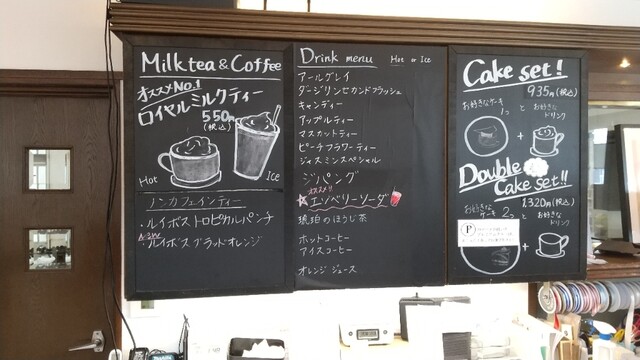 Milktea & Coffee
オススメNo.1
ロイヤルミルクティー
550円
(税込)
Hot
Ice
ノンカフェインティー
・ルイボストロピカルパンチ
・ルイボスブラッドオレンジ
Drink menu Hot or Ice
アールグレイ
ダージリンセカンドフラッシュ
キャンディー
アップルティー
マスカットティー
ピーチフラワーティー
ジャスミンスペシャル
ジパング
オススメ!!
琥珀のほうじ茶
ホットコーヒー
アイスコーヒー
オレンジジュース
Cake set!
935円(税込)
お好きなケーキ
1つ と お好きな
ドリンク
+
Double
Cake set!!
1320円(税込)
お好きな
ケーキ 2つ と お好きな
ドリンク
+
P